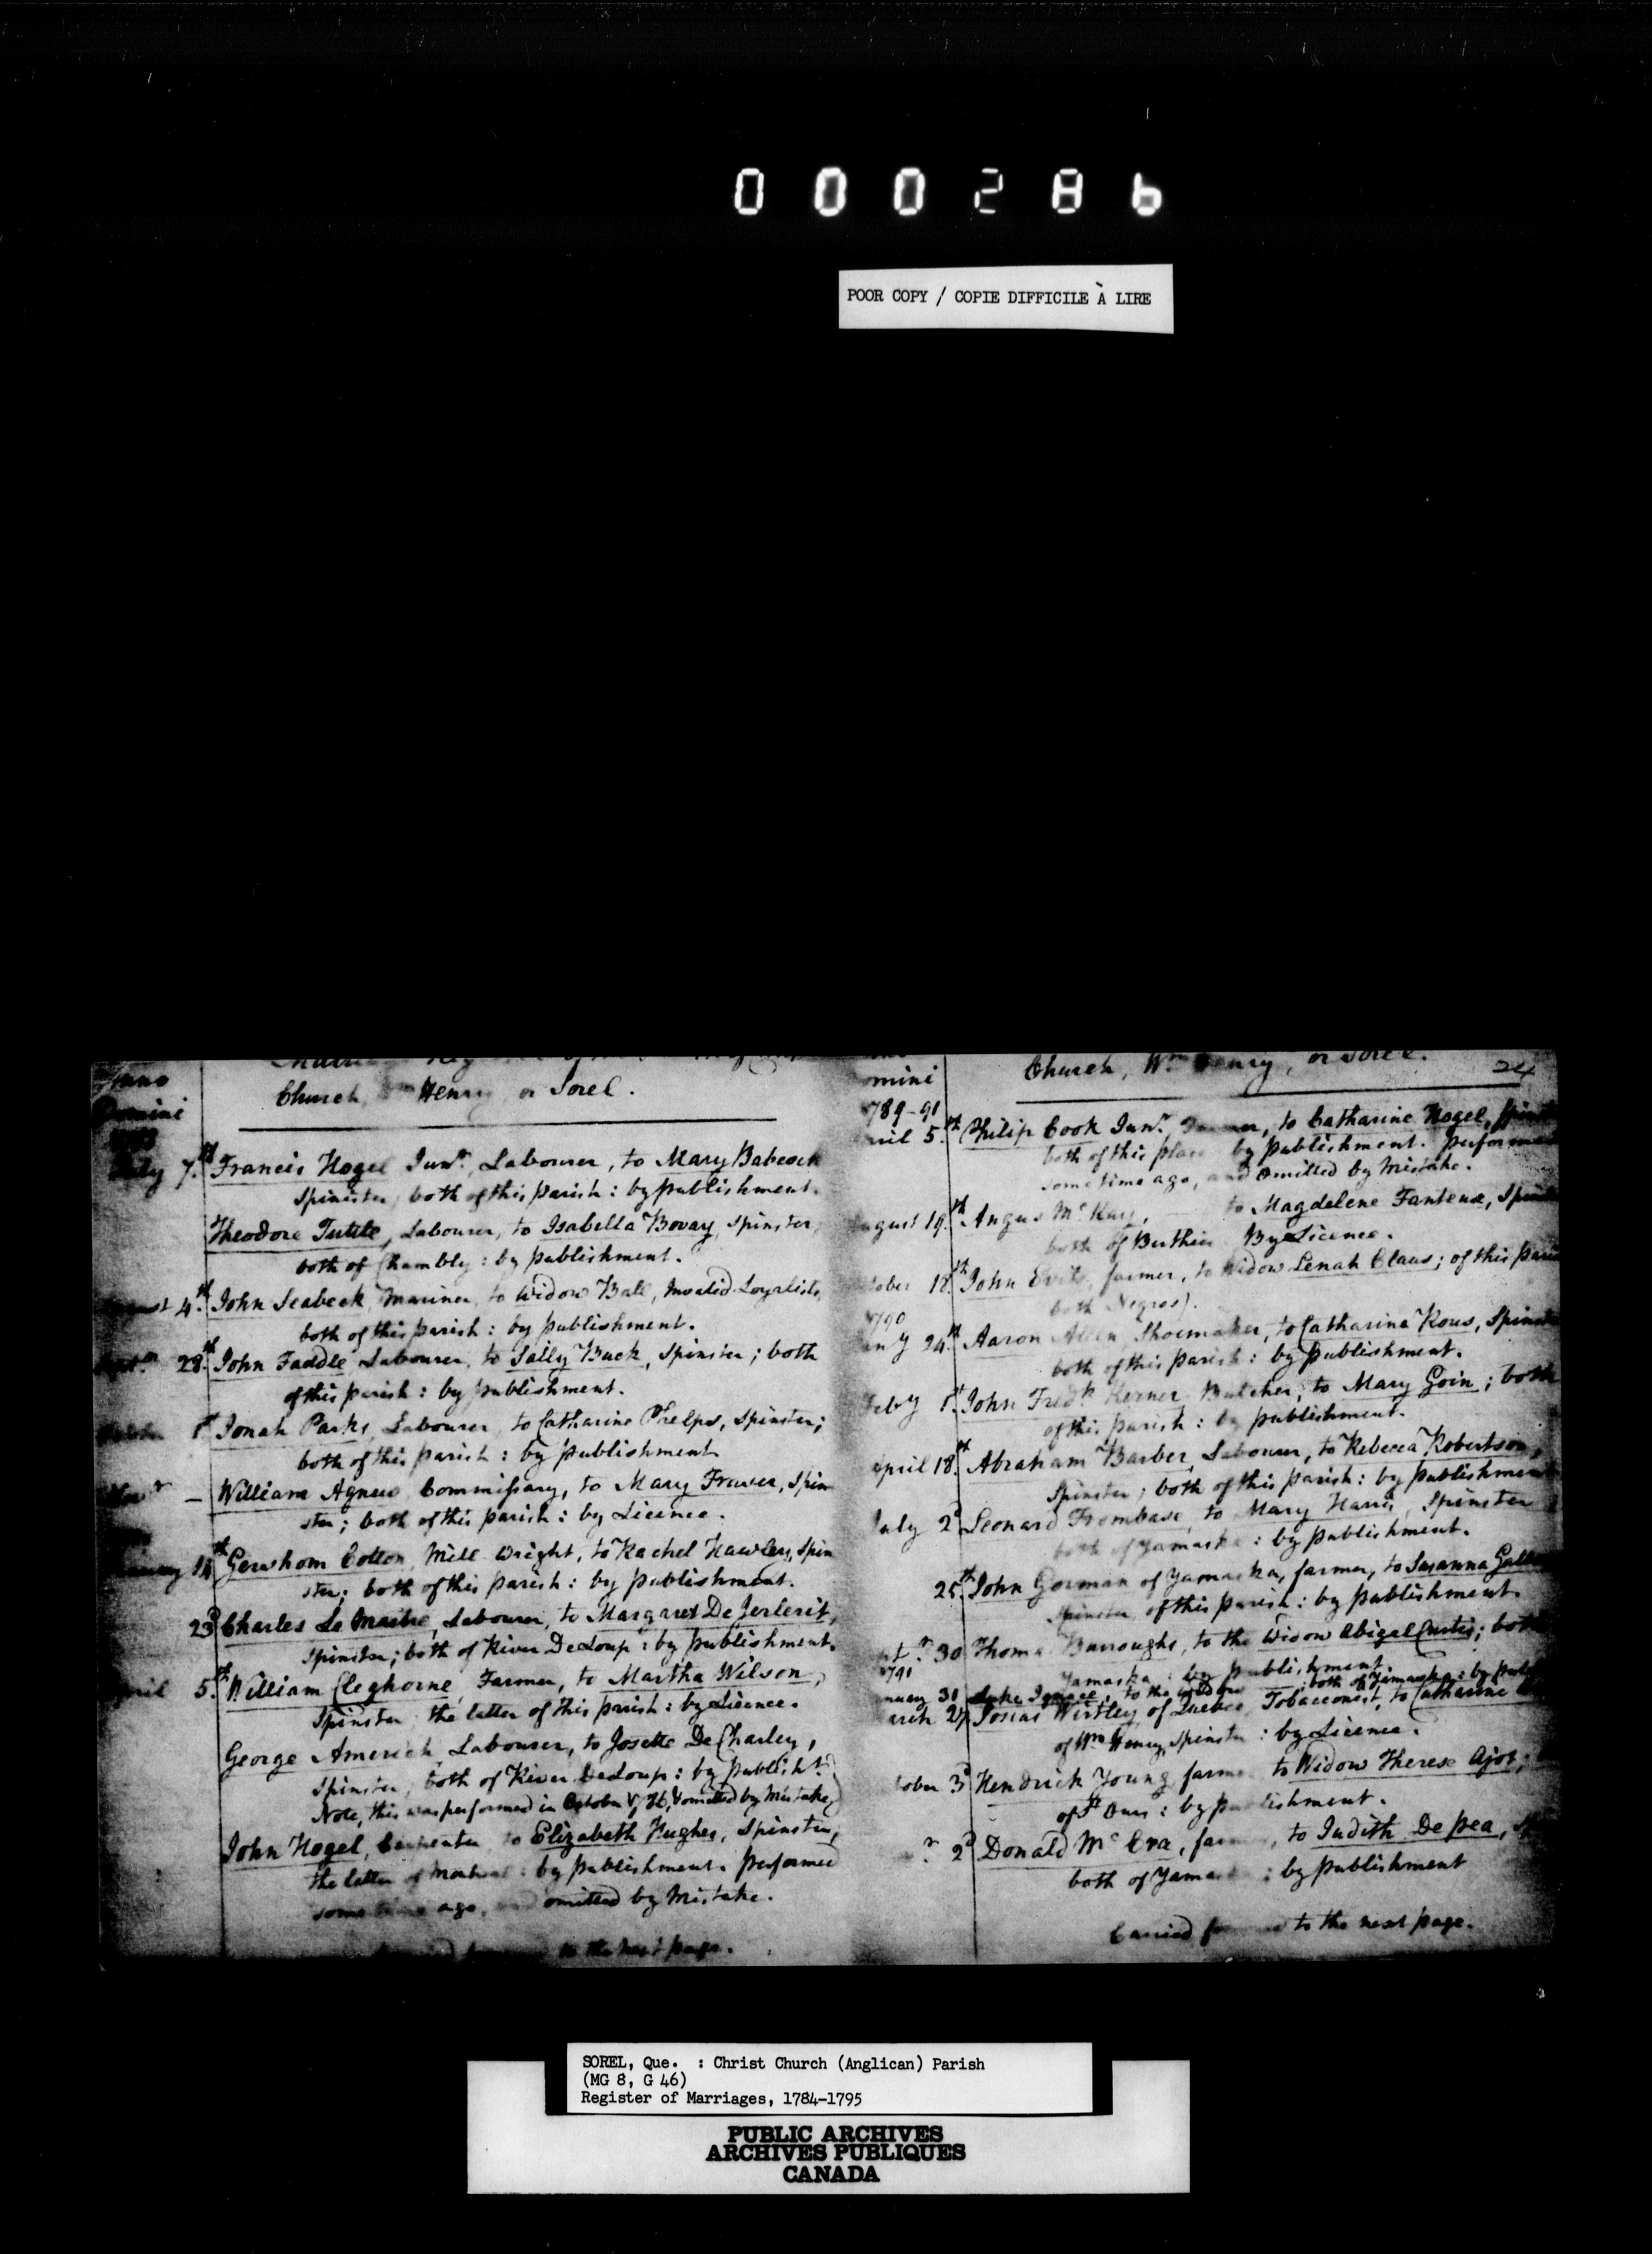 000286
POOR COPY / COPIE DIFFICILE À LIRE
Anno
Domini
Church, Henry, or Sorel.
July 7.th Francis Hogel Junr. Labourer, to Mary Babcock
Spinster, both of this parish: by publishment.
Theodore Tuttle, Labourer, to Isabella Bovay, Spinster,
both of Chambly: by publishment.
4.th John Seabeck, Mariner, to Widow Ball, Invalid Loyalists,
both of this parish: by publishment.
28.th John Faddle Labourer, to Sally Buck, Spinster; both
of this parish: by publishment.
1st Jonah Parks, Labourer, to Catharine Phelps, Spinster;
both of this parish: by publishment
– William Agnew Commissary, to Mary Fraser, Spin
ster; both of this parish: by Licence.
14th Gershom Cotton, Mill Wright, to Rachel Hawley, Spin
ster; both of this parish: by publishment.
23d Charles Le Maitre, Labourer, to Margaret De Jerlerit,
Spinster; both of River DeLoup: by publishment.
April 5.th William Cleghorne, Farmer, to Martha Wilson,
Spinster the latter of this parish: by Licence.
George Americh, Labourer, to Josette De Charley,
Spinster, both of River DeLoup: by publisht.
Note, this was performed in October omitted by Mistake
John Hogel, Carpenter to Elizabeth Hughes, Spinster,
the latter of Montreal: by publishment. performed
some time ago, and omitted by Mistake.
to the next page.
omini
789–91
Church, Wm Henry, or Sorel.
24
ril 5.th Philip Cook Junr. Farmer, to Catharine Hogel, Spin
both of this place by publishment. performed
some time ago, and omitted by Mistake.
ugust 19.th Angus McKay, to Magdelene Fanteux, Spin
both of Berthier By Licence.
tober 18.th John farmer, to Widow Lenah Claus; of this paris
both Negros).
790
an y 24.th Aaron Allen Shoemaker, to Catharina Rous, Spinst
both of this parish: by publishment.
Feb.y 1.st John Fredk. Kerner Butcher, to Mary Goin; both
of this parish: by publishment.
April 18.th Abraham Barber, Labourer, to Rebecca Robertson,
Spinster; both of this parish: by publishment
July 2d Leonard Frombase, to Mary Harris, Spinster
both of Yamaska: by publishment.
25.th John Gorman of Yamaska, farmer, to Susanna
Spinster of this parish: by publishment.
pt.r 30 Thomas Burroughs, to the Widow Abigal Curtis; both
Yamaska: by publishment.
791
nuary 31 Luke to the widow both of Yamaska: by
arch 27. Josias Wirtley of Quebec, Tobacconist, to Catharine
of Wm Henry, Spinster: by Licence.
tober 3d Hendrick Young farmer to Widow Therese Ajot,
of St Ours: by publishment.
r 2d Donald McCra, farmer, to Judith Depea,
both of Yamaska: by publishment
Carried forward to the next page.
SOREL, Que. : Christ Church (Anglican) Parish
(MG 8, G 46)
Register of Marriages, 1784-1795
PUBLIC ARCHIVES
ARCHIVES PUBLIQUES
CANADA